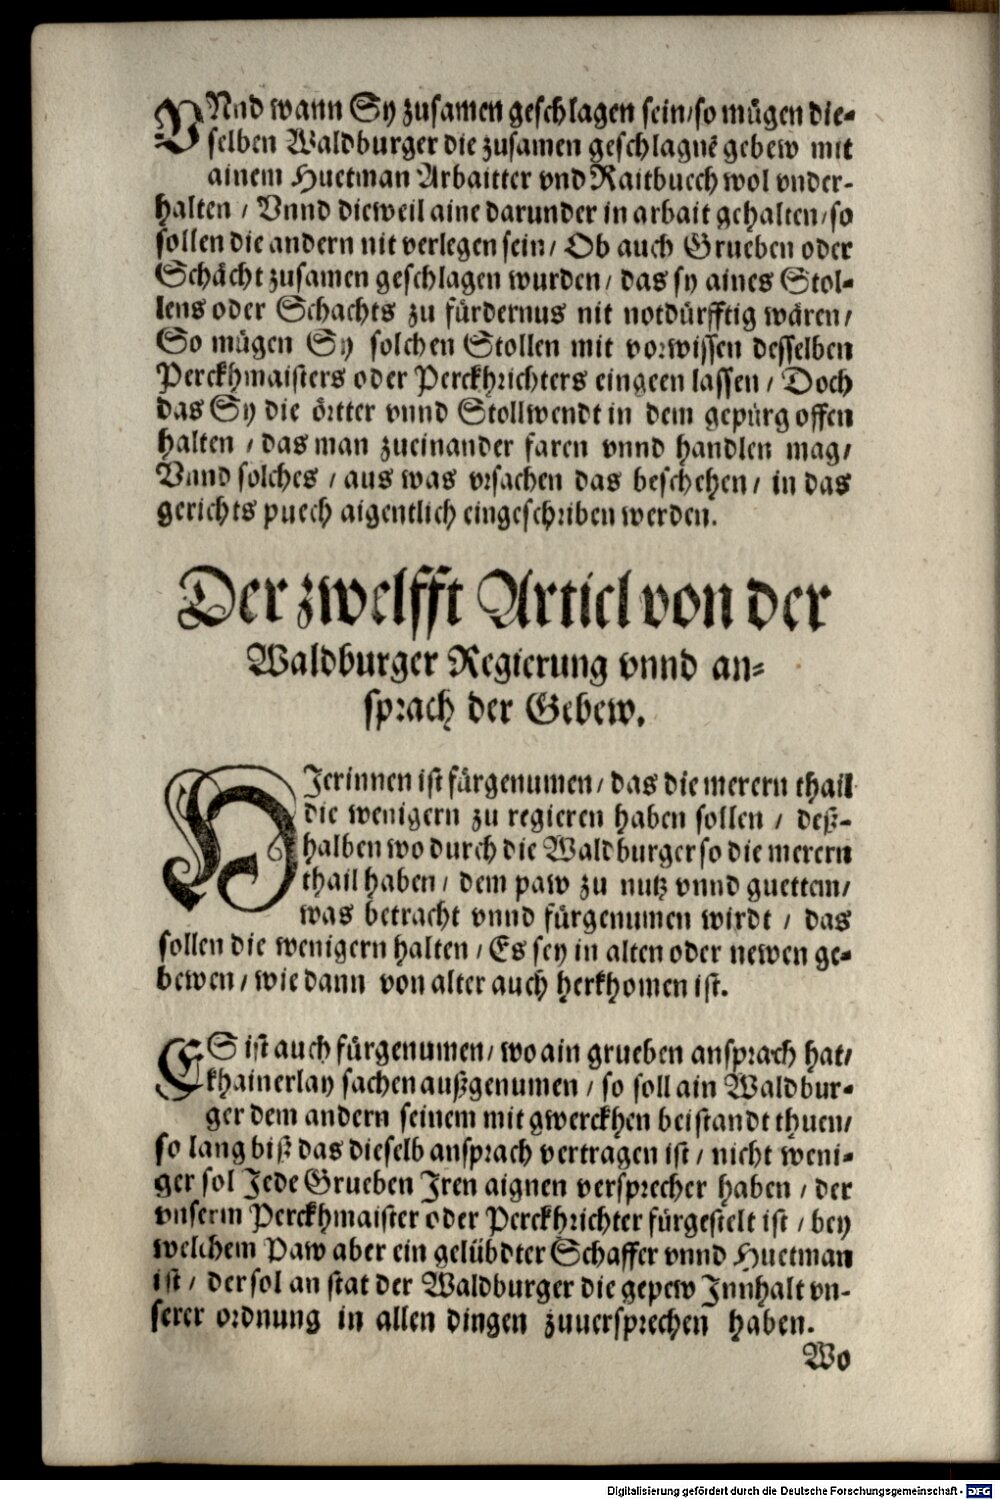 VNnd wann Sy zusamen geschlagen sein/so mügen die-
selben Waldburger die zusamen geschlagnē gebew mit
ainem Huetman Arbaitter vnd Raitbuech wol vnder-
halten / Vnnd dieweil aine darunder in arbait gehalten/so
sollen die andern nit verlegen sein/ Ob auch Grueben oder
Schächt zusamen geschlagen wurden/ das sy aines Stol-
lens oder Schachts zu fürdernus nit notdürfftig wären/
So mügen Sy solchen Stollen mit vorwissen desselben
Perckhmaisters oder Perckhrichters eingeen lassen / Doch
das Sy die örtter vnnd Stollwendt in dem gepürg offen
halten / das man zueinander faren vnnd handlen mag/
Vnnd solches / aus was vrsachen das beschehen / in das
gerichts puech aigentlich eingeschriben werden.
Der zwelfft Articl von der
Waldburger Regierung vnnd an-
sprach der Gebew.
HJerinnen ist fürgenumen/ das die merern thail
die wenigern zu regieren haben sollen / deß-
halben wo durch die Waldburger so die merern
thail haben / dem paw zu nutz vnnd guettem/
was betracht vnnd fürgenumen wirdt / das
sollen die wenigern halten / Es sey in alten oder newen ge-
bewen / wie dann von alter auch herkhomen ist.
ES ist auch fürgenumen/ wo ain grueben ansprach hat/
khainerlay sachen außgenumen / so soll ain Waldbur-
ger dem andern seinem mit gwerckhen beistandt thuen/
so lang biß das dieselb ansprach vertragen ist / nicht weni-
ger sol Jede Grueben Jren aignen versprecher haben / der
vnserm Perckhmaister oder Perckhrichter fürgestelt ist / bey
welchem Paw aber ein gelübdter Schaffer vnnd Huetman
ist / der sol an stat der Waldburger die gepew Jnnhalt vn-
serer ordnung in allen dingen zuuersprechen̄ haben.
Wo
Digitalisierung gefördert durch die Deutsche Forschungsgemeinschaft - DFG